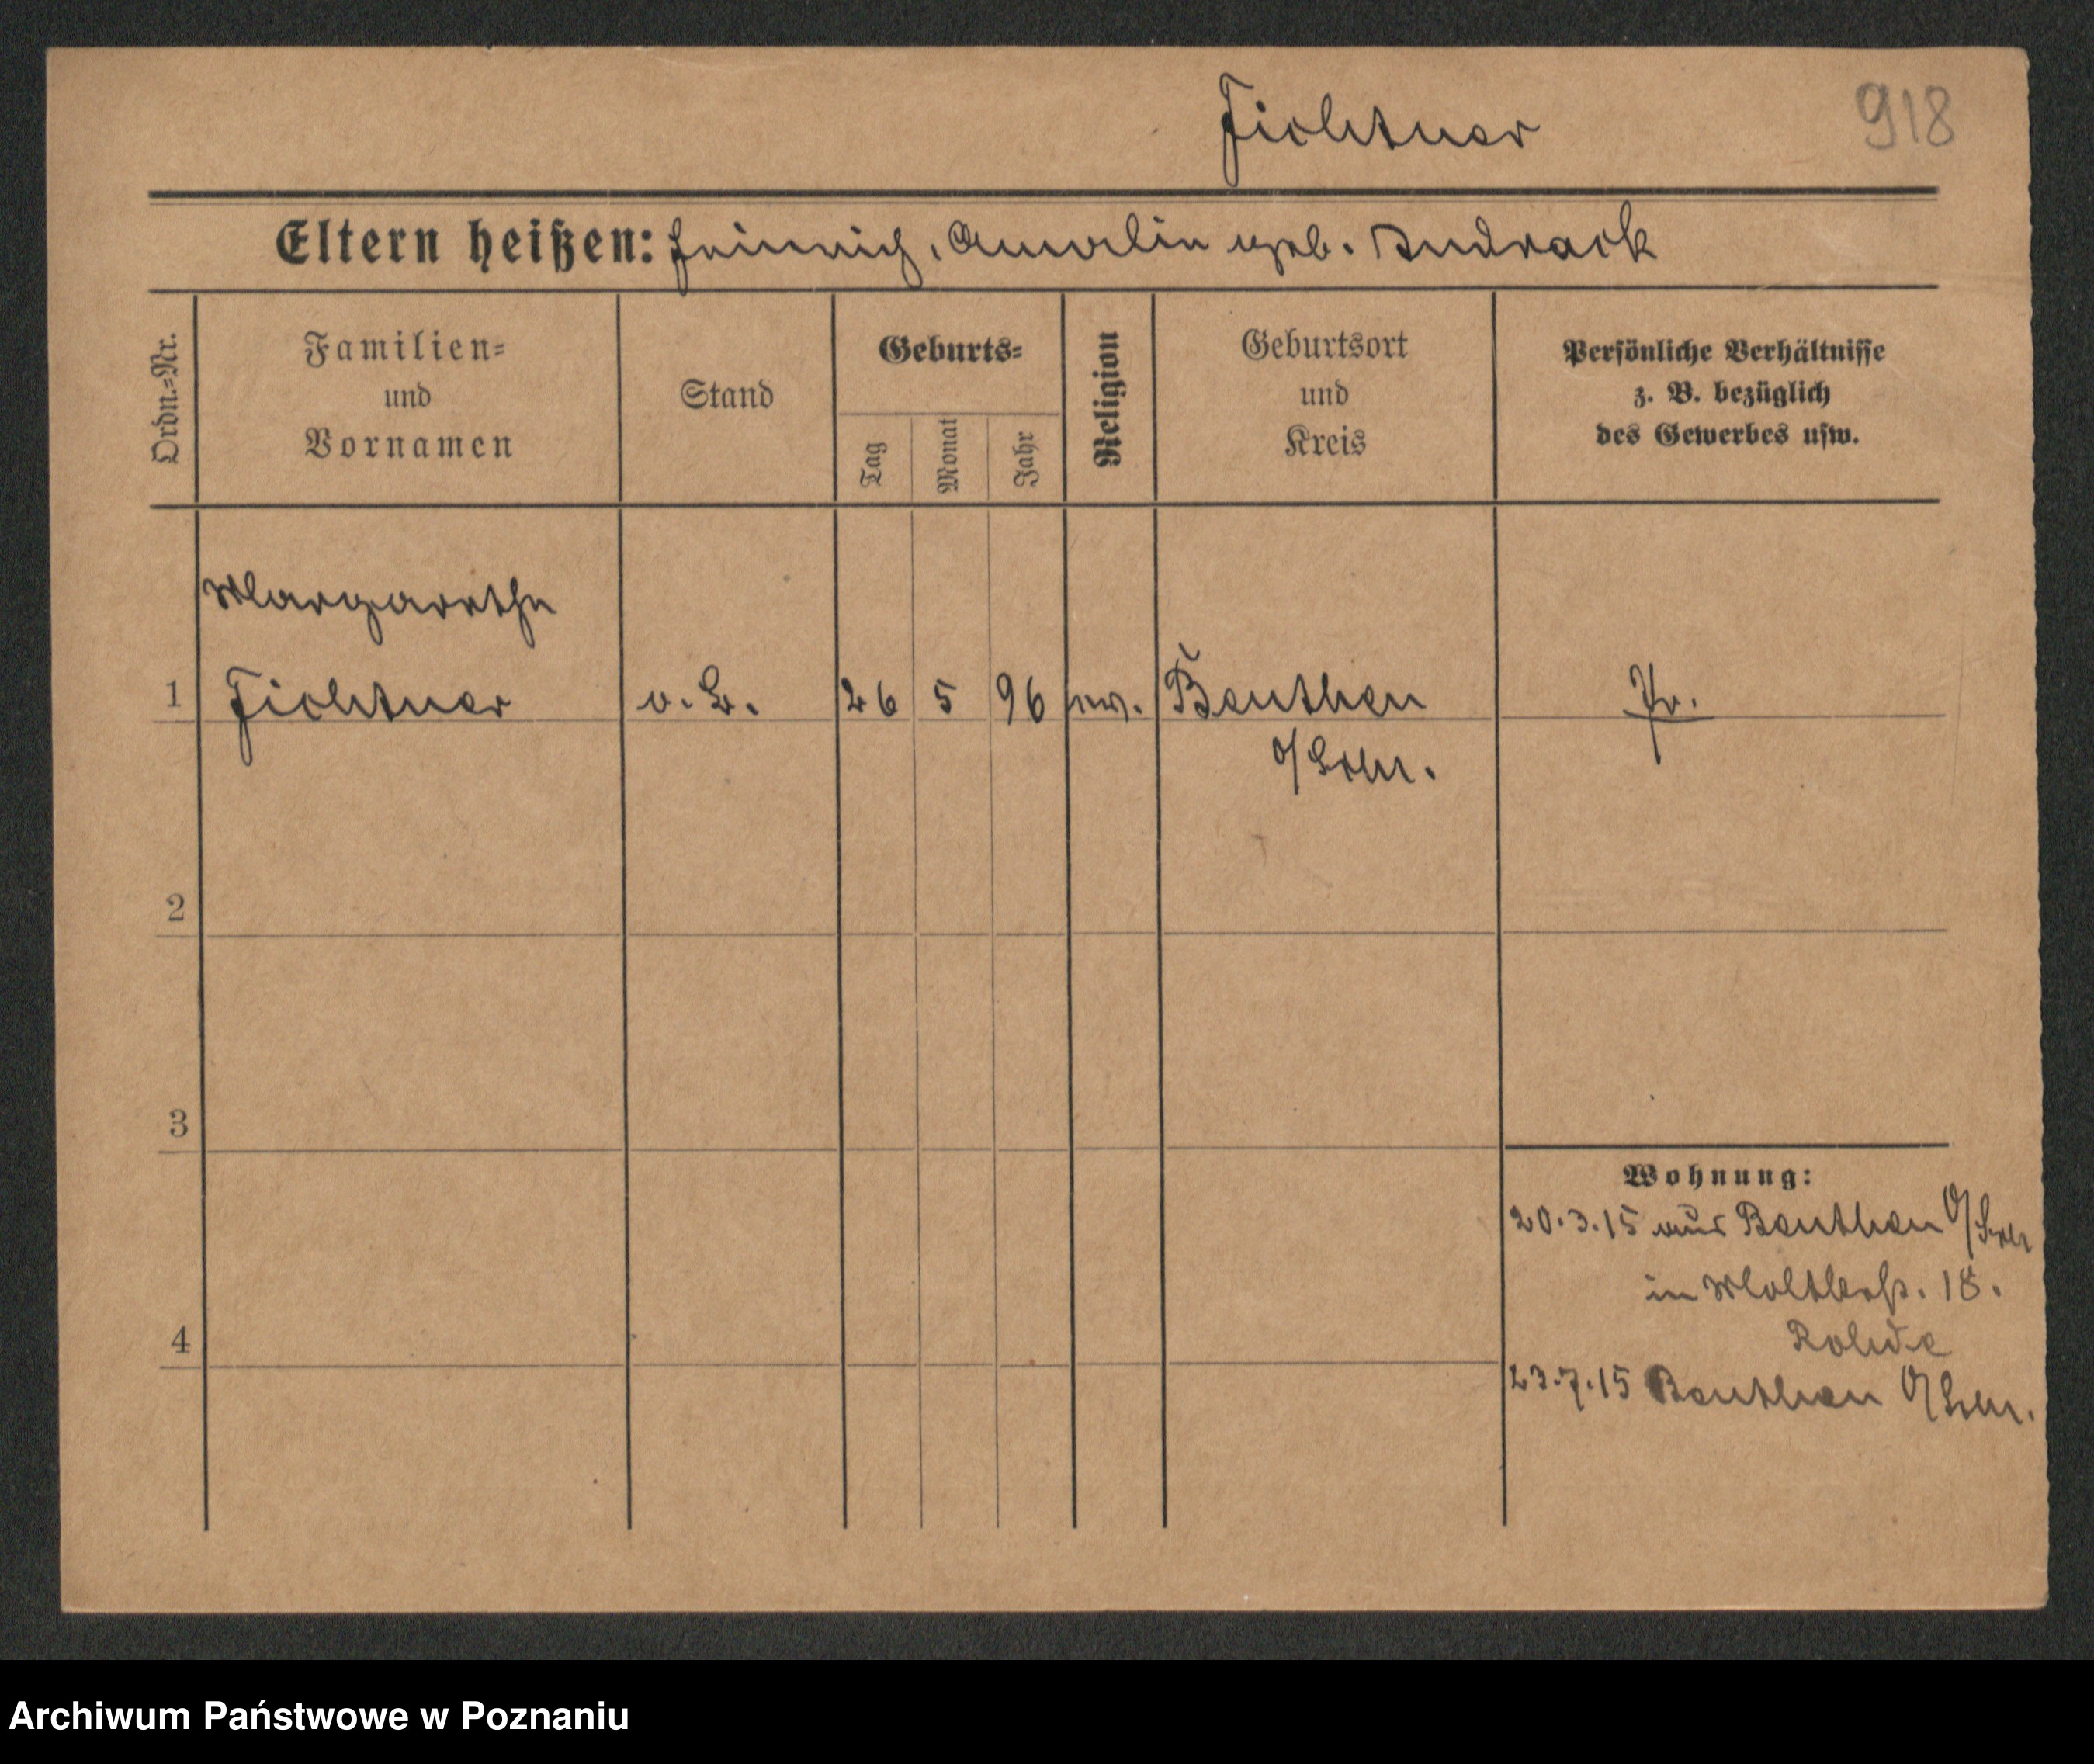 Fichtner
918
Eltern heißen: Heinrich, Amalie geb. Andrack
Ordn.-Nr.
Familien-
und
Vornamen
Stand
Geburts-
Tag
Monat
Jahr
Religion
Geburtsort
und
Kreis
Persönliche Verhältnisse
z. B. bezüglich
des Gewerbes usw.
Margarethe
1 Fichtner o. B. 26 5 96 ev. Beuthen Pr.
O/Schl.
2
3
4
Wohnung:
20.3.15 aus Beuthen O/Schl
in Moltkestr. 18.
Rohde
23.7.15 Beuthen O/Schl.
Archiwum Państwowe w Poznaniu